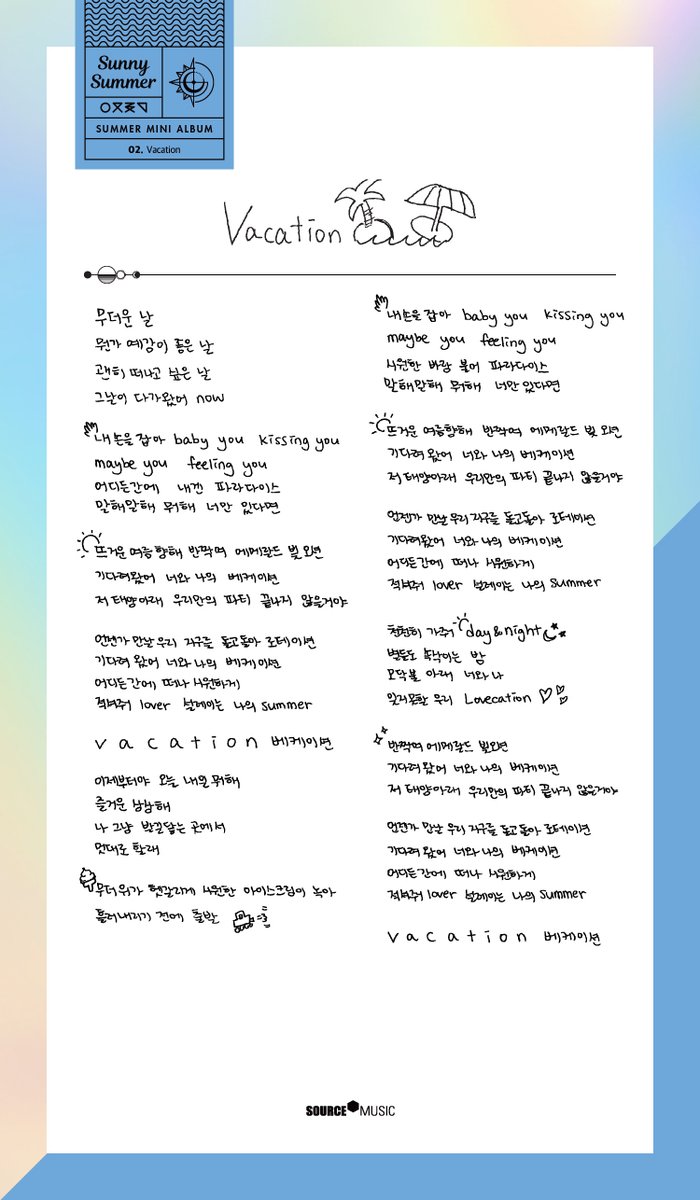 Sunny
Summer
SUMMER MINI ALBUM
02. Vacation
Vacation
무더운 날
뭔가 예감이 좋은 날
괜히 떠나고 싶은 날
그날이 다가왔어 now
내 손을 잡아 baby you kissing you
maybe you feeling you
어디든간에 내겐 파라다이스
말해말해 뭐해 너만 있다면
뜨거운 여름향해 반짝여 에메랄드 빛 외면
기다려왔어 너와 나의 베케이션
저 태양아래 우리만의 파티 끝나지 않을거야
언젠가 만날 우리 지구를 돌고돌아 로테이션
기다려 왔어 너와 나의 베케이션
어디든간에 떠나 시원하게
적셔줘 lover 설레이는 나의 summer
vacation 베케이션
이제부터야 오늘 내일 뭐해
즐거운 상상해
나 그냥 발길닿는 곳에서
멋대로 할래
무더위가 헷갈리게 시원한 아이스크림이 녹아
흘러내리기 전에 출발
내 손을 잡아 baby you kissing you
maybe you feeling you
시원한 바람 불어 파라다이스
말해말해 뭐해 너만 있다면
뜨거운 여름향해 반짝여 에메랄드 빛 외면
기다려 왔어 너와 나의 베케이션
저 태양아래 우리만의 파티 끝나지 않을거야
언젠가 만날 우리 지구를 돌고돌아 로테이션
기다려왔어 너와 나의 베케이션
어디든간에 떠나 시원하게
적셔줘 lover 설레이는 나의 summer
천천히 가줘 day & night
별들도 속삭이는 밤
모닥불 아래 너와 나
잊지못할 우리 Lovecation
반짝여 에메랄드 빛외면
기다려 왔어 너와 나의 베케이션
저 태양아래 우리만의 파티 끝나지 않을거야
언젠가 만날 우리 지구를 돌고돌아 로테이션
기다려 왔어 너와 나의 베케이션
어디든간에 떠나 시원하게
적셔줘 lover 설레이는 나의 summer
vacation 베케이션
SOURCE MUSIC